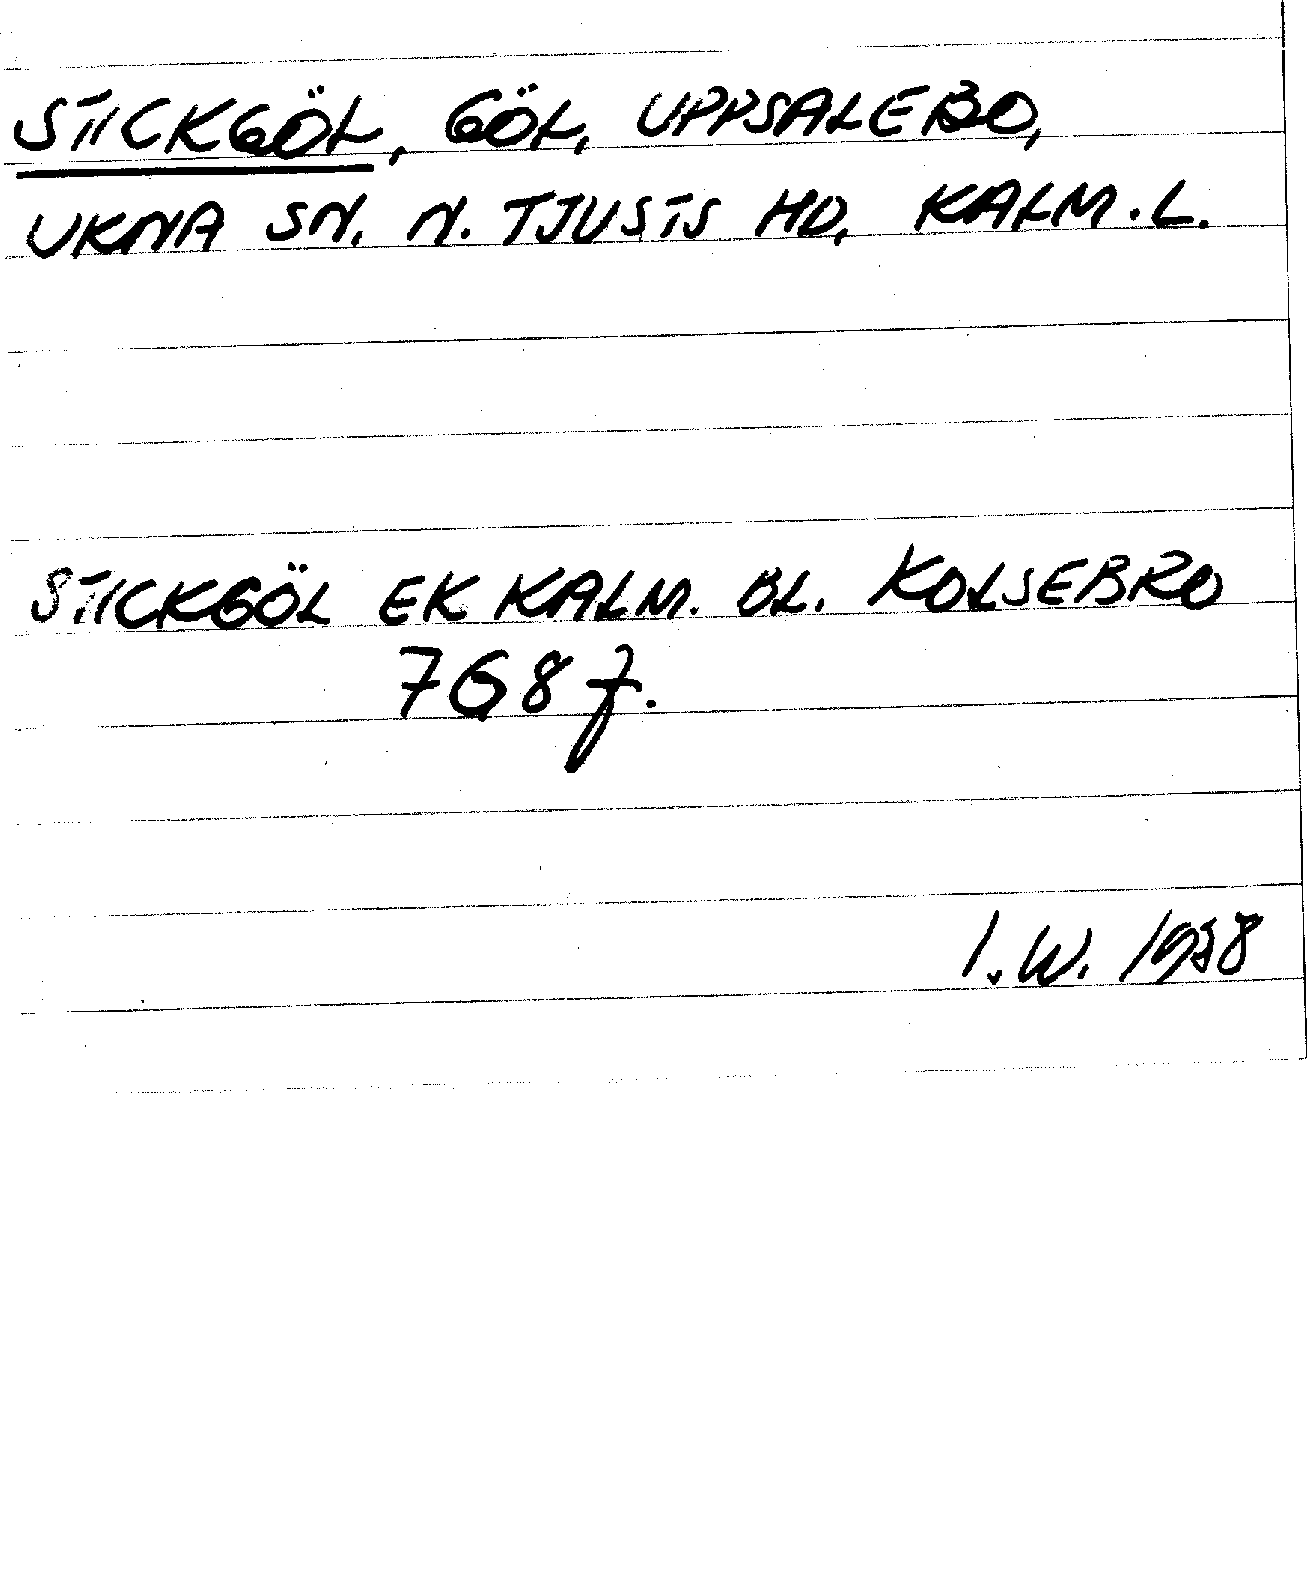 STICKGÖL, GÖL, UPPSALEBO,
UKNA SN. N. TJUSTS HD, KALM. L.
STICKGÖL EK KALM. BL. KOLSEBRO
7G8f.
I.W. 1958